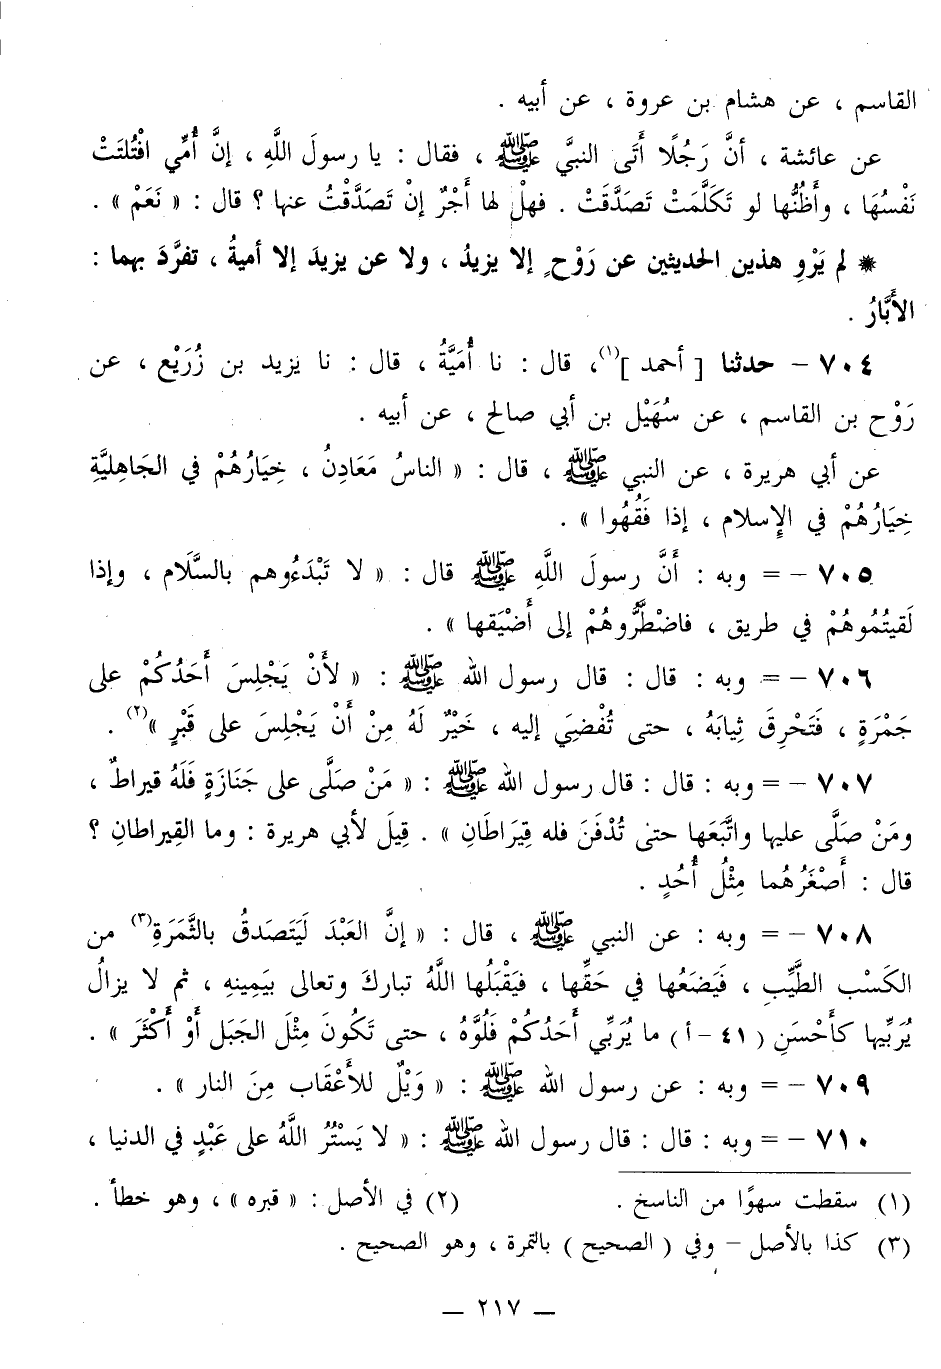 القاسم ، عن هشام بن عروة ، عن أبيه .
عن عائشة ، أنَّ رَجُلًا أَتَى النبيَّ ﷺ ، فقال : يا رسولَ اللَّهِ ، إنَّ أُمِّي افْتُلتَتْ
نَفْسُهَا ، وأَظُنُّها لو تَكَلَّمَتْ تَصَدَّقَتْ . فهلْ لها أَجْرٌ إنْ تَصَدَّقْتُ عنها ؟ قال : « نَعَمْ » .
* لم يَرْوِ هذين الحديثين عن رَوْحٍ إلا يزيدُ ، ولا عن يزيدَ إلا أميةُ ، تفرَّدَ بهما :
الأَبَّارُ .
٧٠٤ – حدثنا [ أحمد ](١)، قال : نا أُمَيَّةُ ، قال : نا يزيد بن زُرَيْع ، عن
رَوْح بن القاسم ، عن سُهَيْل بن أبي صالح ، عن أبيه .
عن أبي هريرة ، عن النبي ﷺ ، قال : « الناسُ مَعَادِنُ ، خِيَارُهُمْ في الجَاهِليَّةِ
خِيَارُهُمْ في الإِسلام ، إذا فَقُهُوا » .
٧٠٥ – = وبه : أَنَّ رسولَ اللَّهِ ﷺ قال : « لا تَبْدَءُوهم بالسَّلَام ، وإذا
لَقيتُمُوهُمْ في طريق ، فاضْطَرُّوهُمْ إلى أَضْيَقها » .
٧٠٦ – = وبه : قال : قال رسول الله ﷺ : « لأَنْ يَجْلِسَ أَحَدُكُمْ على
جَمْرَةٍ ، فَتَحْرِقَ ثِيابَهُ ، حتى تُفْضِيَ إليه ، خَيْرٌ لَهُ مِنْ أَنْ يَجْلِسَ على قَبْرٍ »(٢) .
٧٠٧ – = وبه : قال : قال رسول الله ﷺ : « مَنْ صَلَّى على جَنَازَةٍ فَلَهُ قيراطٌ ،
ومَنْ صَلَّى عليها واتَّبَعَها حتى تُدْفَنَ فله قِيَرَاطَانِ » . قِيلَ لأبي هريرة : وما القِيراطانِ ؟
قال : أَصْغَرُهُما مِثْلُ أُحُدٍ .
٧٠٨ – = وبه : عن النبي ﷺ ، قال : « إنَّ العَبْدَ لَيَتَصَدقُ بالثَّمَرَةِ(٣) من
الكَسْب الطَّيِّبِ ، فَيَضَعُها في حَقِّها ، فيَقْبَلُها اللَّهُ تبارك وتعالى بيَمِينهِ ، ثم لا يزالُ
يُرَبِّيها كأَحْسَنِ ( ٤١ – أ ) ما يُرَبِّي أَحَدُكُمْ فَلُوَّهُ ، حتى تَكُونَ مِثْلَ الجَبَل أَوْ أَكْثَرَ » .
٧٠٩ – = وبه : عن رسول الله ﷺ : « وَيْلٌ للأَعْقَاب مِنَ النار » .
٧١٠ – = وبه : قال : قال رسول الله ﷺ : « لا يَسْتُرُ اللَّهُ على عَبْدٍ في الدنيا ،
(١) سقطت سهوًا من الناسخ . (٢) في الأصل : « قبره » ، وهو خطأ .
(٣) كذا بالأصل – وفي ( الصحيح ) بالتمرة ، وهو الصحيح .
— ٢١٧ —